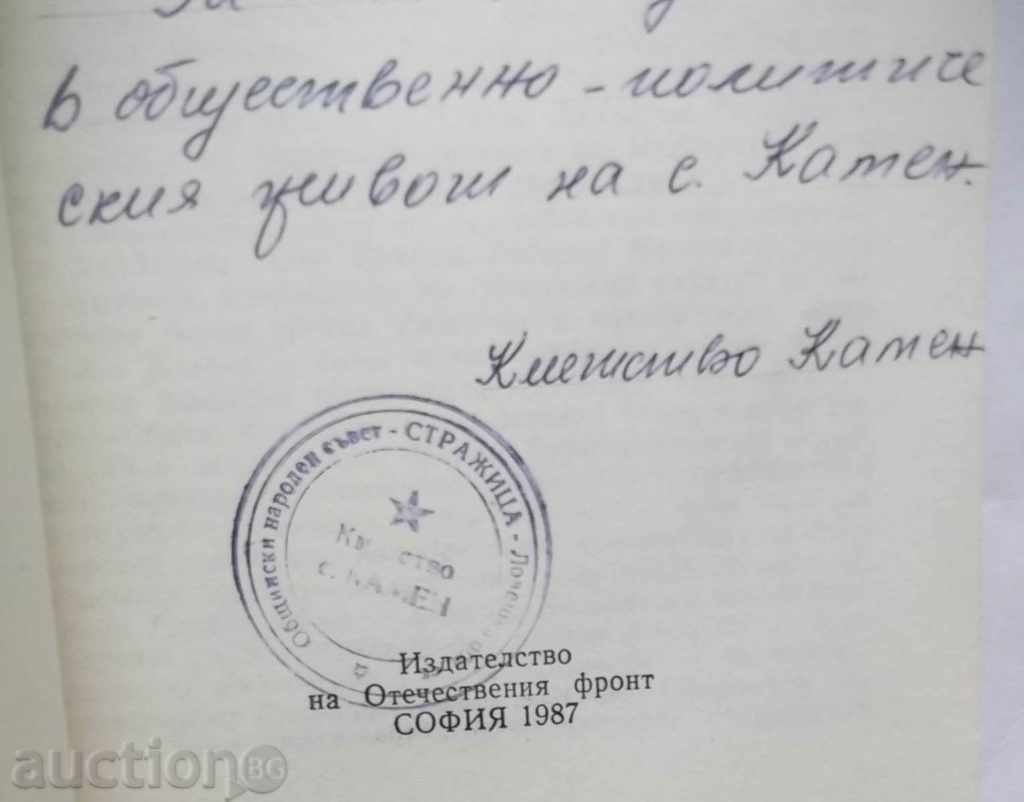 За
в общественно-политиче
ския живот на с. Камен.
Кметство Камен
Общински народен съвет - СТРАЖИЦА -
Кметство
с. КАМЕН
Издателство
на Отечествения фронт
СОФИЯ 1987
auctionBG